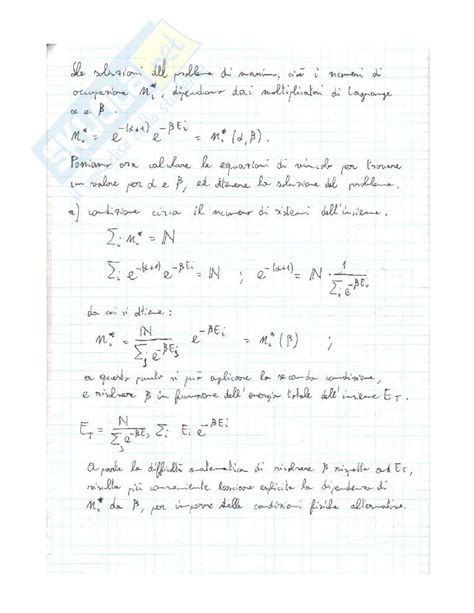 Le soluzioni del problema di massimo, cioè i numeri di
occupazione n_i^*, dipendono dai moltiplicatori di Lagrange
α e β.
n_i^* = e^{-(α+1)} e^{-βE_i} = n_i^*(α,β).
Possiamo ora calcolare le equazioni di vincolo per trovare
un valore per α e β, ed ottenere la soluzione del problema.
a) condizione circa il numero di sistemi dell'insieme.
Σ_i n_i^* = ℕ
Σ_i e^{-(α+1)} e^{-βE_i} = ℕ ; e^{-(α+1)} = ℕ · 1/(Σ_i e^{-βE_i})
da cui si ottiene:
n_i^* = ℕ/(Σ_j e^{-βE_j}) e^{-βE_i} = n_i^*(β) ;
a questo punto si può applicare la seconda condizione,
e risolvere β in funzione dell'energia totale dell'insieme E_T.
E_T = ℕ/(Σ_j e^{-βE_j}) Σ_i E_i e^{-βE_i}
A parte la difficoltà matematica di risolvere β rispetto ad E_T,
risulta più conveniente lasciare esplicita la dipendenza di
n_i^* da β, per imporre delle condizioni fisiche alternative.